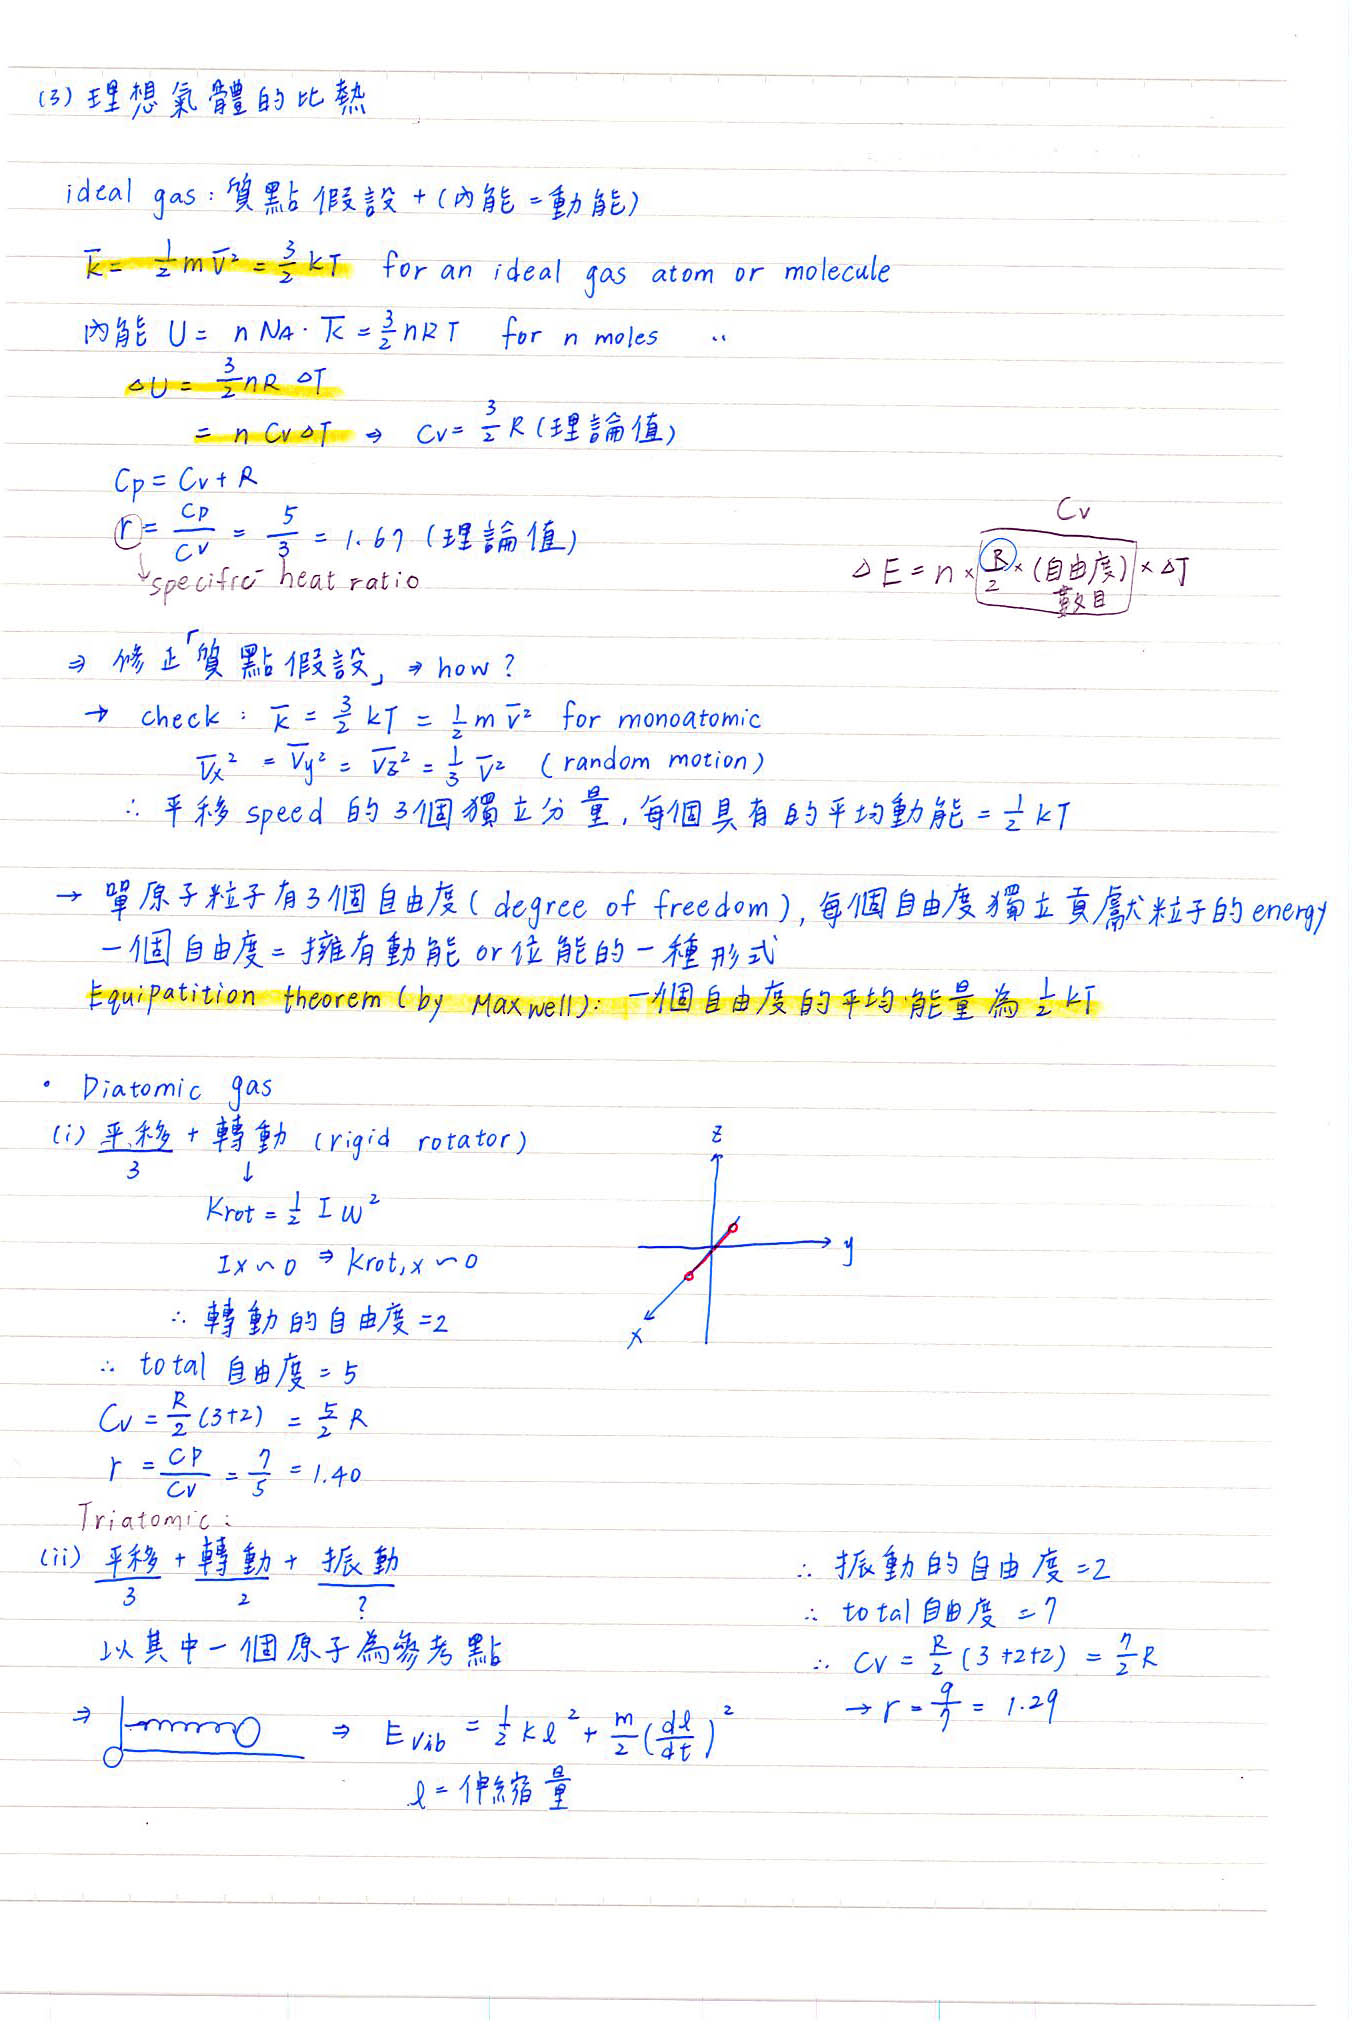 (3) 理想氣體的比熱
ideal gas : 質點假設 + (內能 = 動能)
K̅ = 1/2 m v̅² = 3/2 kT for an ideal gas atom or molecule
內能 U = n NA · K̅ = 3/2 nRT for n moles
△U = 3/2 nR △T
= n Cv △T ⇒ Cv = 3/2 R (理論值)
Cp = Cv + R
r = Cp/Cv = 5/3 = 1.67 (理論值)
↓ specific heat ratio
Cv
△E = n × R/2 × (自由度) × △T
數目
⇒ 修正「質點假設」 → how ?
→ check : K̅ = 3/2 kT = 1/2 m v̅² for monoatomic
V̅x² = V̅y² = V̅z² = 1/3 V̅² (random motion)
∴ 平移 speed 的 3個獨立分量, 每個具有的平均動能 = 1/2 kT
→ 單原子粒子有3個自由度 (degree of freedom), 每個自由度獨立貢獻粒子的 energy
一個自由度 = 擁有動能 or 位能的一種形式
Equipatition theorem (by Maxwell): 一個自由度的平均能量為 1/2 kT
• Diatomic gas
(i) 平移 + 轉動 (rigid rotator)
3 ↓
Krot = 1/2 I ω²
Ix ~ 0 ⇒ Krot,x ~ 0
∴ 轉動的自由度 = 2
z
y
x
∴ total 自由度 = 5
Cv = R/2 (3+2) = 5/2 R
r = Cp/Cv = 7/5 = 1.40
Triatomic :
(ii) 平移 + 轉動 + 振動
3 2 ?
以其中一個原子為參考點
⇒ ⇒ E vib = 1/2 k l² + m/2 (dl/dt)²
l = 伸縮量
∴ 振動的自由度 = 2
∴ total 自由度 = 7
∴ Cv = R/2 (3+2+2) = 7/2 R
→ r = 9/7 = 1.29